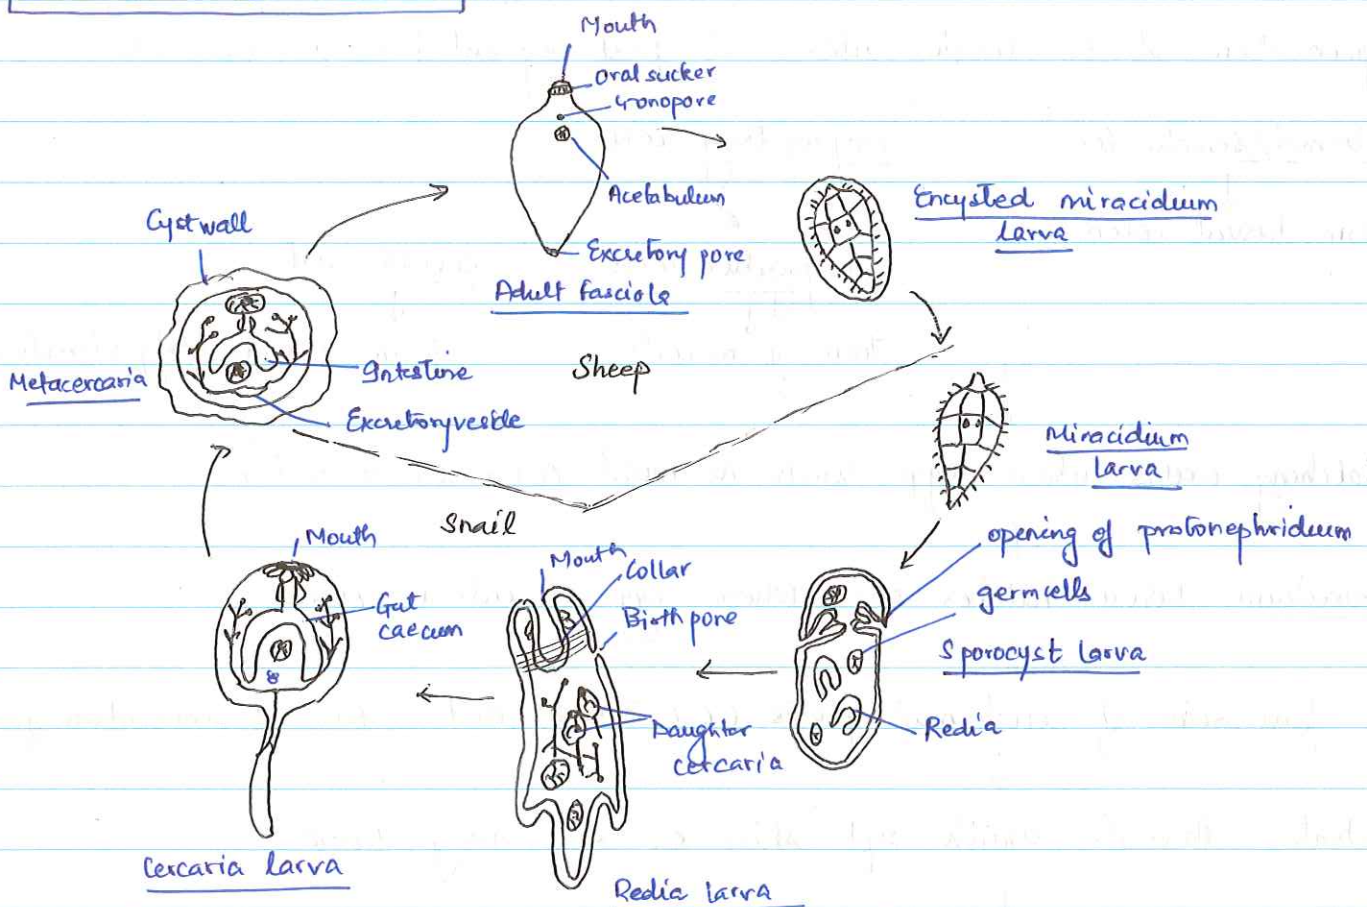 Mouth
Oral sucker
Gonopore
Acetabulum
Excretory pore
Adult fasciola
Encysted miracidium
larva
Cyst wall
Metacercaria
Intestine
Excretory vesicle
Sheep
Snail
Miracidium
larva
opening of protonephridium
germcells
Sporocyst larva
Redia
Mouth
Collar
Birth pore
Daughter
cercaria
Redia larva
Mouth
Gut
caecum
Cercaria larva